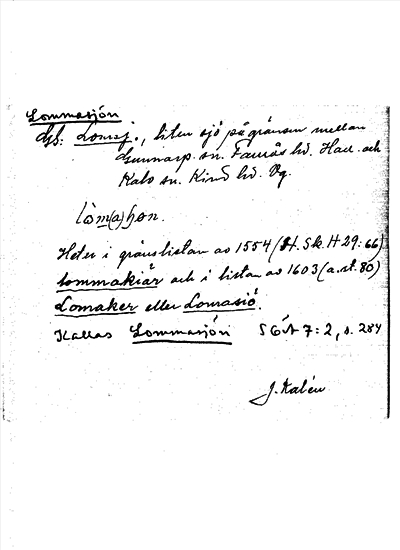 Lommasjön
Gs: Lomsj., liten sjö på gränsen mellan
Gunnarp sn. Faurås hd. Hall. och
Kalv sn. Kind hd. Vg.
lòm(a)ʃɷn.
Heter i gränslistan av 1554 (H. Sk. H 29: 66)
lommakiär och i listan av 1603 (a. st. 80)
Lomaker eller Lomasiö.
Kallas Lommasjön SGÅ 7: 2, s. 284
J. Kalén